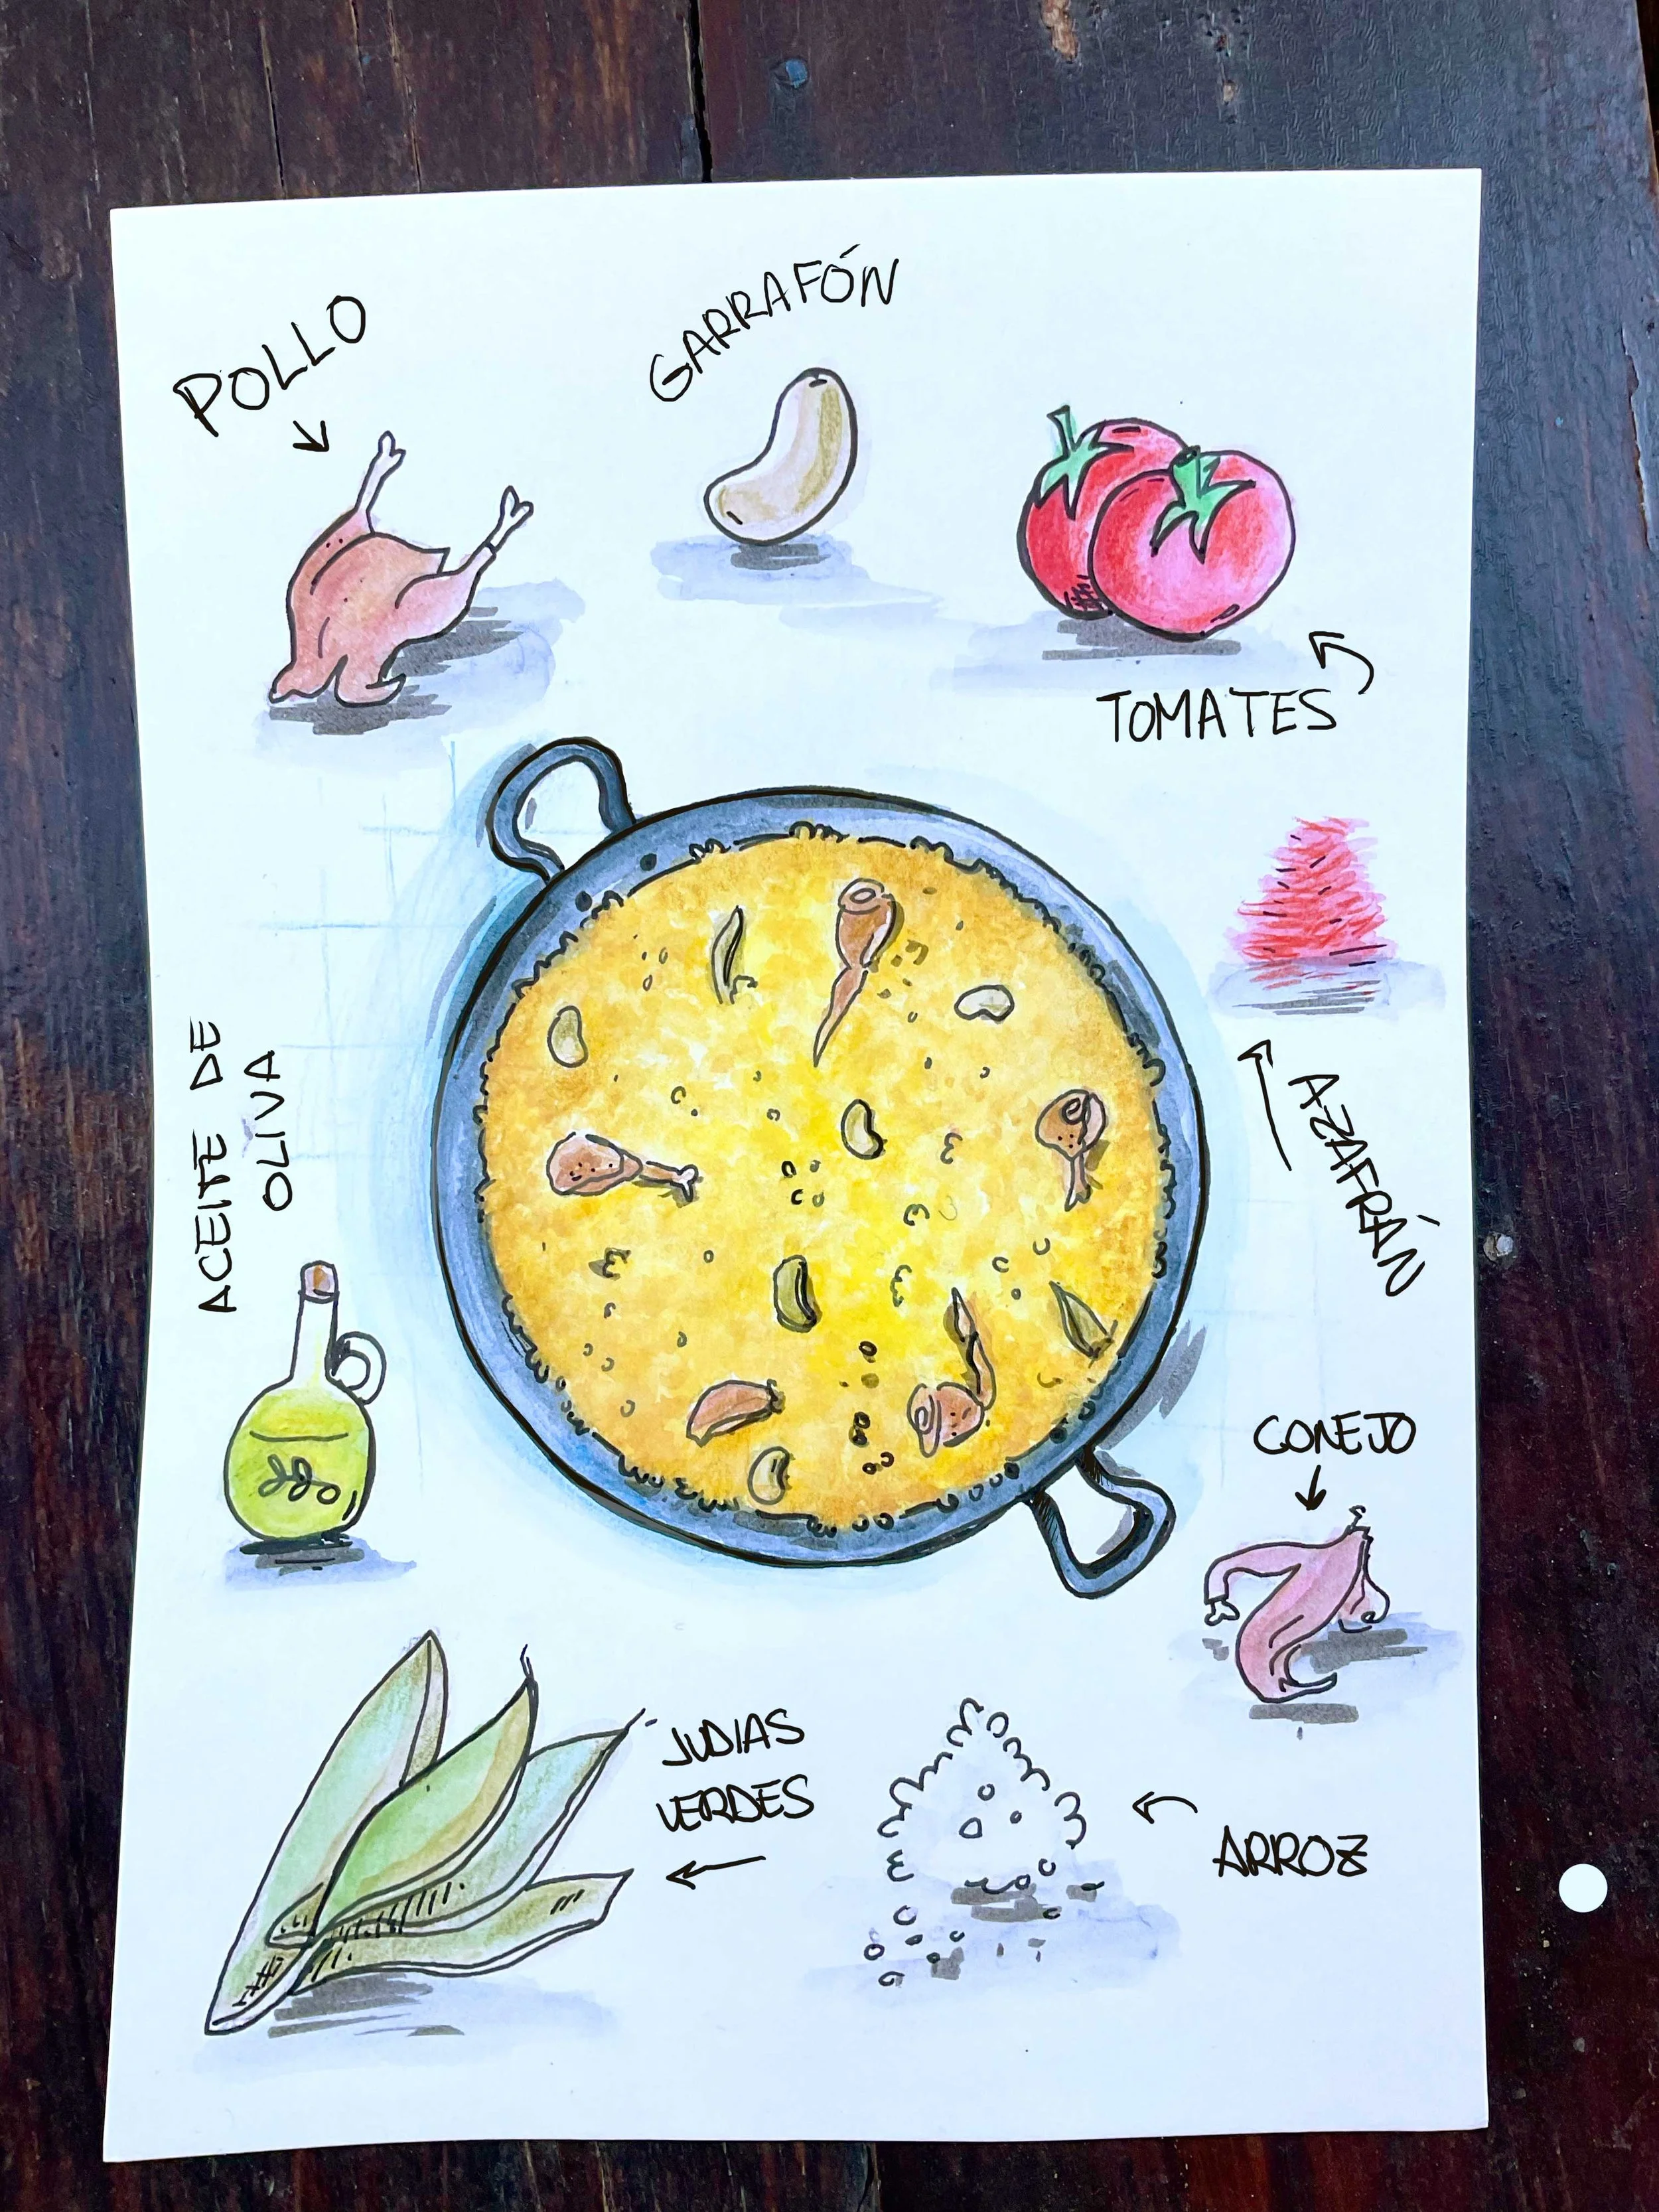 POLLO
GARRAFÓN
TOMATES
ACEITE DE
OLIVA
AZAFRÁN
CONEJO
JUDIAS
VERDES
ARROZ